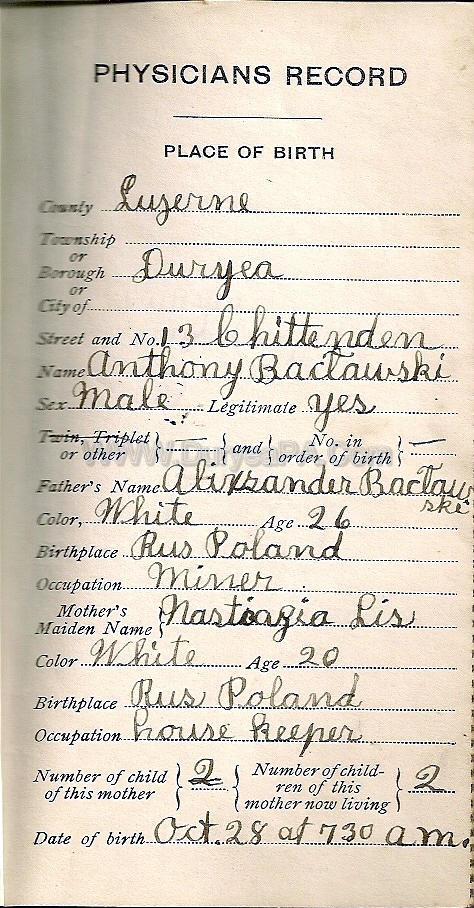 PHYSICIANS RECORD
PLACE OF BIRTH
County Luzerne
Township
or
Borough Duryea
or
City of
Street and No. 13 Chittenden
Name Anthony Bacławski
Sex Male Legitimate yes
Twin, Triplet or other } — { and { No. in order of birth } —
Father's Name Alixzander Bacławski
Color, White Age 26
Birthplace Rus Poland
Occupation Miner
Mother's Maiden Name } Nastiazia Lis
Color White Age 20
Birthplace Rus Poland
Occupation house keeper
Number of child of this mother } 2 { Number of children of this mother now living } 2
Date of birth Oct. 28 at 730 a m.